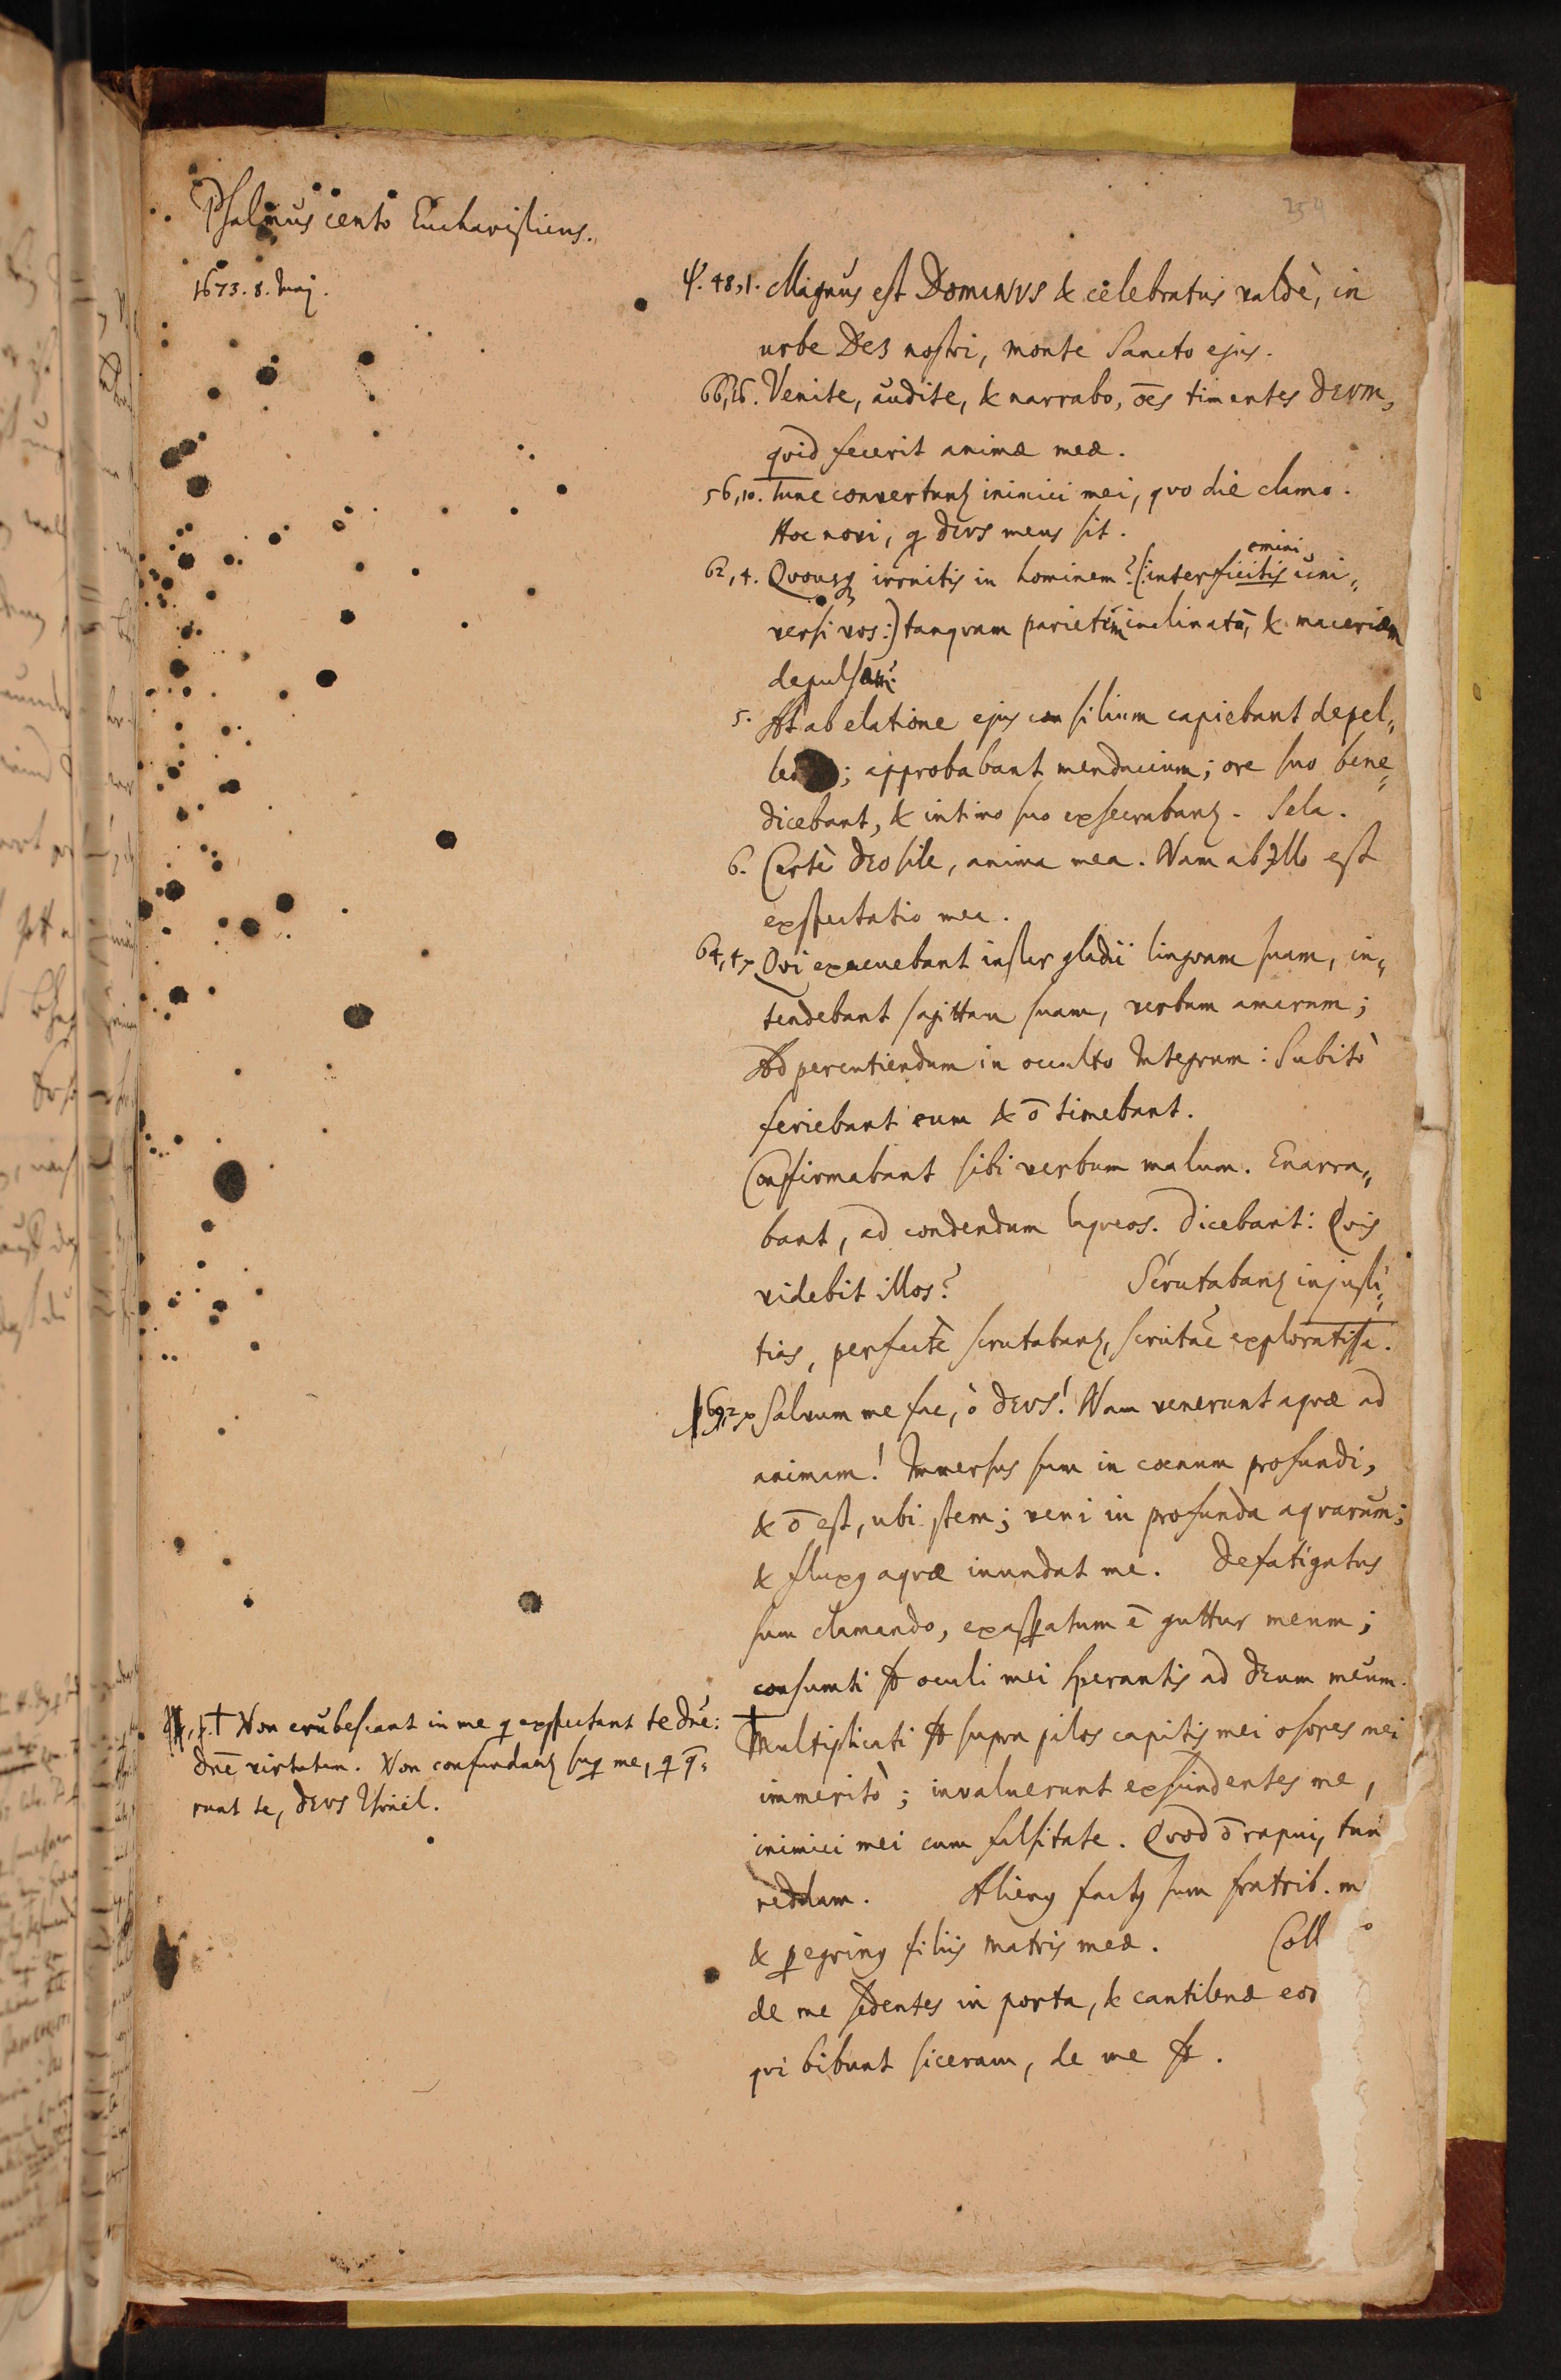 Psalmus cento Eucharisticus.
1673. 8. Maj.
254
ψ. 48,1. Magnus est DOMINVS & celebratus valdè, in
urbe DEI nostri, monte Sancto ejus.
66,16. Venite, audite, & narrabo, oēs timentes DEVM,
qvid fecerit animæ meæ.
56,10. Tunc convertentʒ inimici mei, qvo die clamo.
Hoc novi, q DEVS meus sit.
emini
62,4. Qvousq irruitis in hominem? (interficitis uni-
versi vos:) tanqvam parietem inclinatū, & maceriam
depulsam?
5. At ab elatione ejus consilium capiebant depel-
; approbabant mendacium; ore suo bene-
dicebant, & intimo suo exsecrabantʒ. Sela.
6. Certè DEO sile, anima mea. Nam ab Illo est
exspectatio mea.
64,4. Qvi exacuebant instar gladii lingvam suam, in-
tendebant sagittam suam, verbum amarum;
Ad percutiendum in occulto Integrum: Subitò
feriebant eum & ō timebant.
Confirmabant sibi verbum malum. Enarra-
bant, ad condendum laqveos. Dicebant: Qvis
videbit illos? Scrutabantʒ injusti-
tias, perfectè scrutabantʒ, scrutāe exploratiss.
69,2. Salvum me fac, ò DEVS! Nam venerunt aqvæ ad
animam! Immersus sum in cœnum profundi,
& ō est, ubi stem; veni in profunda aqvarum;
& fluxq aqvæ inundat me. Defatigatus
sum clamando, exaspatum ē guttur meum;
consumti st oculi mei sperantis ad DEum meum.
† Multiplicati st supra pilos capitis mei osores mei
immeritò; invaluerunt exscindentes me,
inimici mei cum falsitate. Qvod ō rapui, tun
reddam. Alienq factq sum fratrib. m
& pegrinq filiis matris meæ. Coll
de me sedentes in porta, & cantilenæ eor
qvi bibunt siceram, de me st.
† Non erubescant in me q exspectant te Dn̄e:
Dn̄e virtutum. Non confundantʒ sup me, q q̄-
runt te, DEVS Israel.